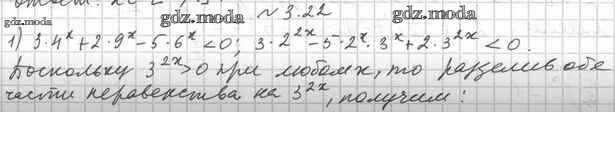 ответ.
gdz.moda gdz.moda № 3.22 gdz.moda
1) 3·4ˣ+2·9ˣ-5·6ˣ<0; 3·2²ˣ-5·2ˣ·3ˣ+2·3²ˣ<0.
Поскольку 3²ˣ>0 при любом x, то разделив обе
части неравенства на 3²ˣ, получим: